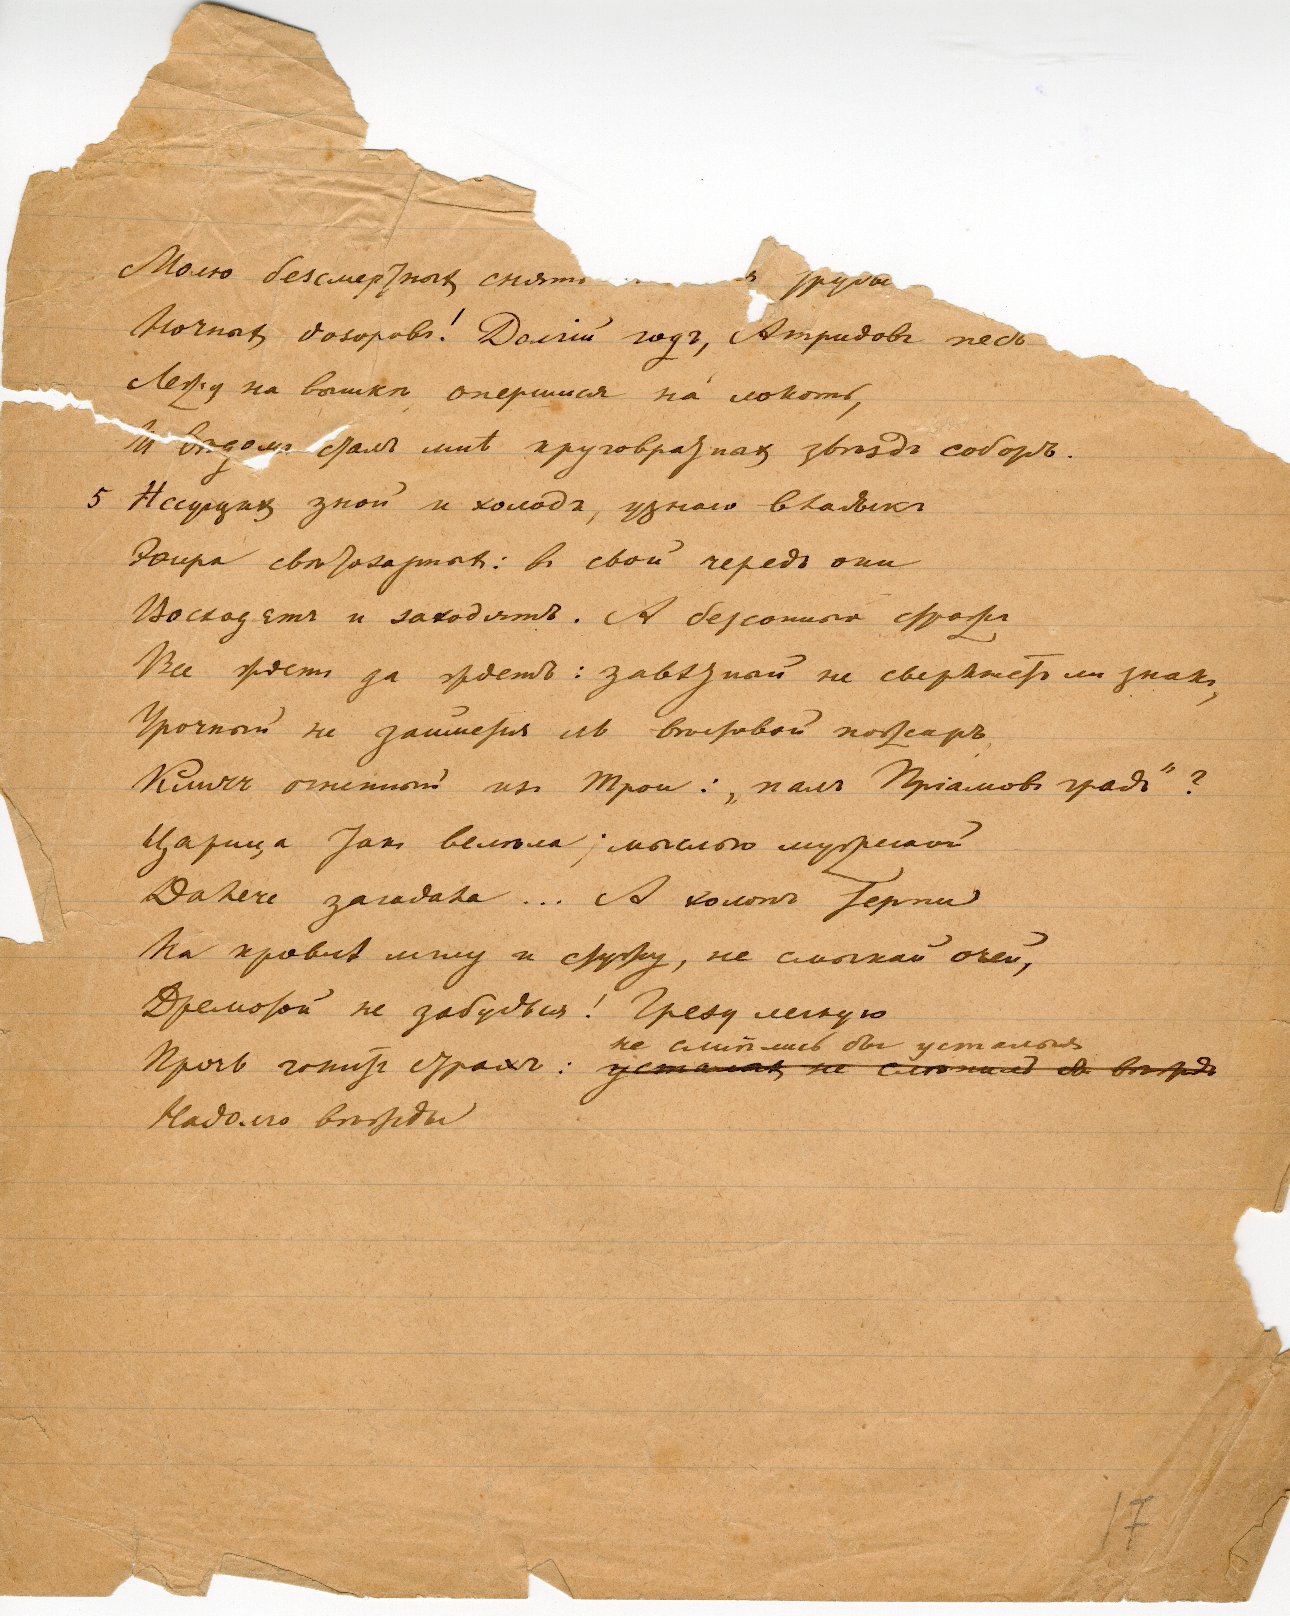 Молю безсмертныхъ снять я труды
Ночныхъ дозоровъ! Долгій годъ, Атридовъ песъ
Лежу на вышкѣ опершися на локоть,
И вѣдомъ сталъ мнѣ круговратныхъ звѣздъ соборъ.
5 Несущихъ зной и холодъ, узнаю владыкъ
Эѳира свѣтозарныхъ: въ свой чередъ они
Восходятъ и заходятъ. А безсонный стражъ
Все ждетъ да ждетъ: завѣтный не сверкнетъ ли знакъ,
Урочный не займется ль вѣстовой пожаръ,
Кличъ огненный изъ Трои: „палъ Пріамовъ градъ"?
Царица такъ велѣла; мыслью мужескою
Далече загадала ... А холопъ терпи
На кровлѣ мглу и стужу, не смыкай очей,
Дремотой не забудься! Грезу легкую
Прочь гонитъ страхъ: не слиплись бы усталыя
усталыхъ не слѣпилъ бъ вѣждъ
Надолго вѣжды
17